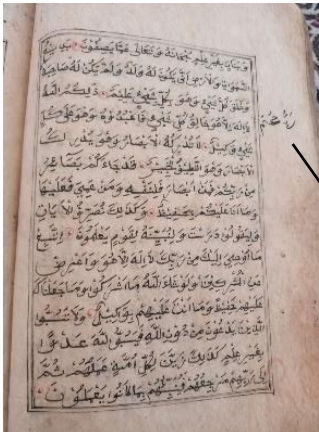 وبنات بغير علم سبحانه وتعالى عما يصفون بديع
السموات والارض انى يكون له ولد ولم تكن له صاحبة
وخلق كل شيء وهو بكل شيء عليم ذلكم الله
ربكم لا اله الا هو خالق كل شيء فاعبدوه وهو على كل
شيء وكيل لا تدركه الابصار وهو يدرك
الابصار وهو اللطيف الخبير قد جاءكم بصائر
من ربكم فمن ابصر فلنفسه ومن عمي فعليها
وما انا عليكم بحفيظ وكذلك نصرف الايات
وليقولوا درست ولنبينه لقوم يعلمون اتبع
ما اوحي اليك من ربك لا اله الا هو واعرض
عن المشركين ولو شاء الله ما اشركوا وما جعلناك
عليهم حفيظا وما انت عليهم بوكيل ولا تسبوا
الذين يدعون من دون الله فيسبوا الله عدوا
بغير علم كذلك زينا لكل امة عملهم ثم
الى ربهم مرجعهم فينبئهم بما كانوا يعملون